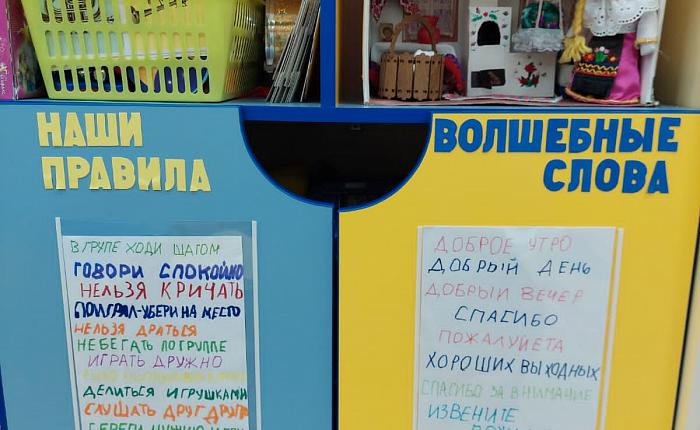 НАШИ
ПРАВИЛА
В ГРУПЕ ХОДИ ШАГОМ
ГОВОРИ СПОКОЙНО
НЕЛЬЗЯ КРИЧАТЬ
ПОИГРАЛ-УБЕРИ НА МЕСТО
НЕЛЬЗЯ ДРАТЬСЯ
НЕБЕГАТЬ ПО ГРУППЕ
ИГРАТЬ ДРУЖНО
ДЕЛИТЬСЯ ИГРУШКАМИ
СЛУШАТЬ ДРУГ ДРУГА
ВОЛШЕБНЫЕ
СЛОВА
ДОБРОЕ УТРО
ДОБРЫЙ ДЕНЬ
ДОБРЫЙ ВЕЧЕР
СПАСИБО
ПОЖАЛУЙЕТА
ХОРОШИХ ВЫХОДНЫХ
СПАСИБО ЗА ВНИМАНИЕ
ИЗВЕНИТЕ